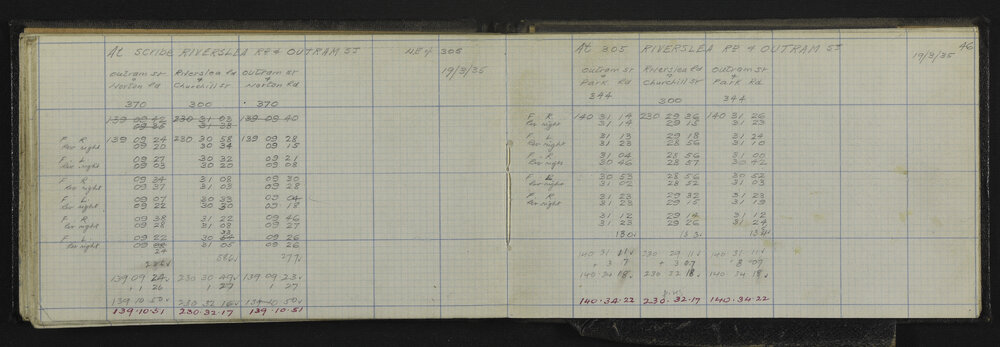 At SCRIBE RIVERSLEA Rd & OUTRAM St NEW 305
19/3/35
Outram St Riverslea Rd Outram St
+ + +
Norton Rd Churchill St Norton Rd
370 300 370
139 09 42 230 31 03 139 09 40
09 36 31 28
F R 139 09 24 230 30 58 139 09 28
Per night 09 20 30 34 09 15
F L 09 27 30 32 09 21
Per night 09 03 30 20 09 08
F R 09 34 31 08 09 30
Per night 09 37 31 03 09 28
F L 09 07 30 33 09 04
Per night 09 22 30 30 09 18
F R 09 38 31 22 09 46
Per night 09 28 31 08 09 27
F L 09 22 30 09 26
Per night 09 31 05 09 26
24
586 277
139 09 24 230 30 49 139 09 23
+ 1 26 1 27 1 27
139 · 10 · 50 230 32 16 139 10 50
139 · 10 · 51 230 · 32 · 17 139 · 10 · 51
46
At 305 RIVERSLEA Rd & OUTRAM St
19/3/35
Outram St Riverslea Rd Outram St
+ + +
Park Rd Churchill St Park Rd
344 300 344
F R 140 31 14 230 29 36 140 31 26
Per night 31 14 29 15 31 23
F L 31 13 29 18 31 24
Per night 31 23 28 56 31 10
F R 31 04 28 56 31 00
Per night 30 46 28 57 30 42
F L 30 53 28 56 30 52
Per night 31 02 28 52 31 03
F R 31 23 29 32 31 23
Per night 31 23 29 15 31 19
31 12 29 14 31 12
31 23 29 26 31 24
130 133
140 31 11 230 29 11 140 31
+ 3 7 + 3 07 3 07
140 34 18 230 32 18 140 34 18
140 · 34 · 22 230 · 32 · 17 140 · 34 · 22